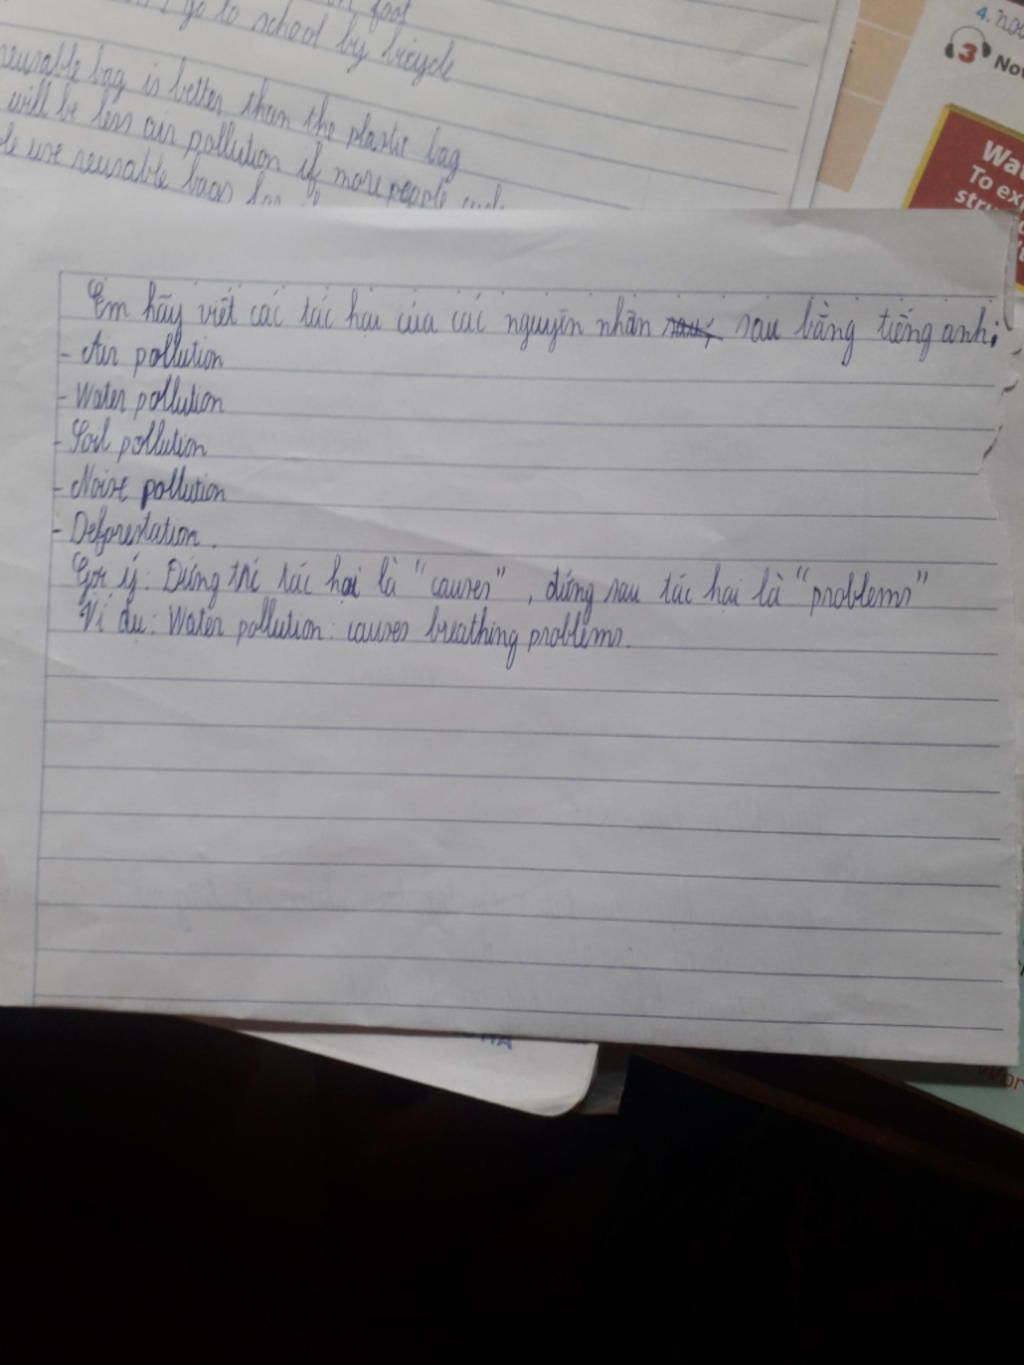 foot
go to school by bicycle
reusable bag is better than the plastic bag
will be less air pollution if more people
use reusable bags
4.
3
No
Wa
To ex
stru
Em hãy viết các tác hại của các nguyên nhân sau bằng tiếng anh:
- Air pollution
- Water pollution
- Soil pollution
- Noise pollution
- Deforestation.
Gợi ý: Đứng trc tác hại là "causes", đứng sau tác hại là "problems"
Ví dụ: Water pollution: causes breathing problems.
Wor